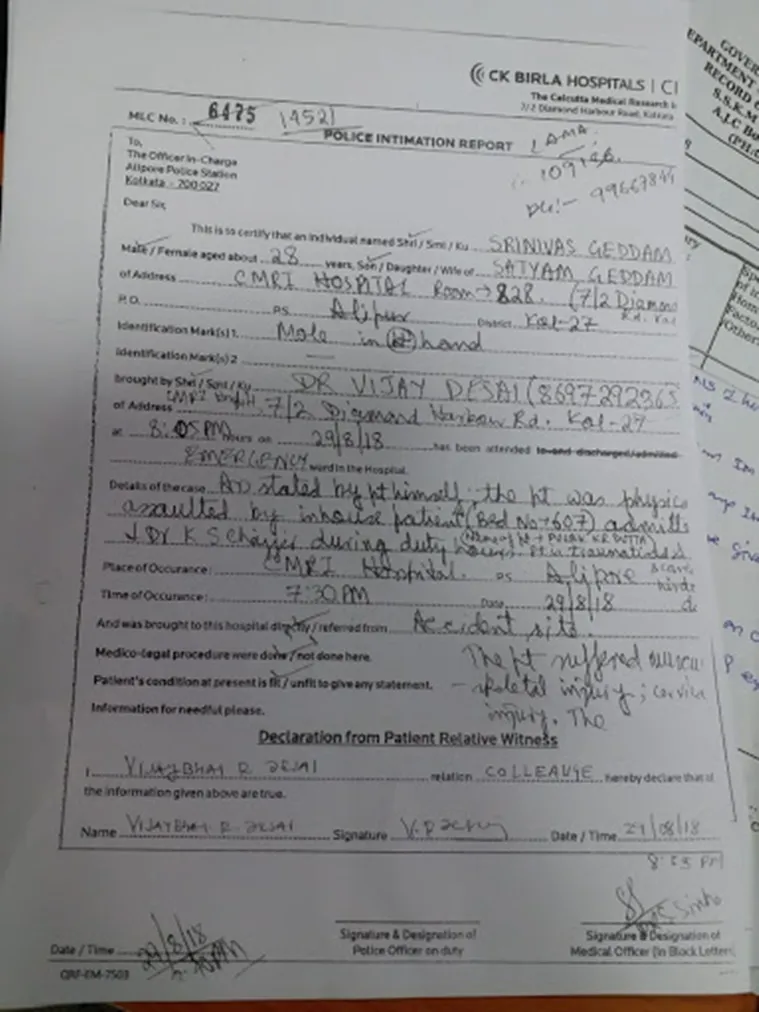 CK BIRLA HOSPITALS | C
The Calcutta Medical Research
7/2 Diamond Harbour Road, Kolkata
MLC No. : 6475 (452)
POLICE INTIMATION REPORT
LAMA
To,
The Officer In-Charge
Alipore Police Station
Kolkata - 700 027
Ph:- 99667844
Dear Sir,
This is to certify that an individual named Shri / Smt / Ku SRINIVAS GEDDAM
Male / Female aged about 28 years, Son / Daughter / Wife of SATYAM GEDDAM
of Address CMRI HOSPITAL Room → 828. (7/2 Diamond
Rd. Kol
P.O. P.S. Alipur District Kol-27
Identification Mark(s) 1. Mole in hand
Identification Mark(s) 2 —
brought by Shri / Smt / Ku DR VIJAY DESAI (8697292365
of Address CMRI 7/2 Diamond Harbour Rd. Kol-27
at 8:05 PM hours on 29/8/18 has been attended to and discharged/admitted
EMERGENCY ward in the Hospital.
Details of the case As stated by pt himself; the pt was physic
assaulted by inhouse patient (Bed No→607) admitt
(Name of pt → PULAK KR DUTTA)
Dr K S during duty hours. Pt is traumatized
Place of Occurance : CMRI Hospital. PS Alipore
Time of Occurance : 7:30 PM Date 29/8/18
And was brought to this hospital directly / referred from Accident site.
Medico-legal procedure were done / not done here. The pt suffered muscu
Patient's condition at present is fit / unfit to give any statement. - skeletal injury; cervica
Information for needful please. injury. The
Declaration from Patient Relative Witness
I VIJAYBHAI R DESAI relation COLLEAUGE hereby declare that al
the information given above are true.
Name VIJAYBHAI R. DESAI Signature Date / Time 29/08/18
8:55 PM
Date / Time 29/8/18
Signature & Designation of
Police Officer on duty
Signature & Designation of
Medical Officer (In Block Letter)
QRF-EM-7503
GOVER
DEPARTMENT
RECORD
S.S.K.M
A.J.C Bo
(PH.